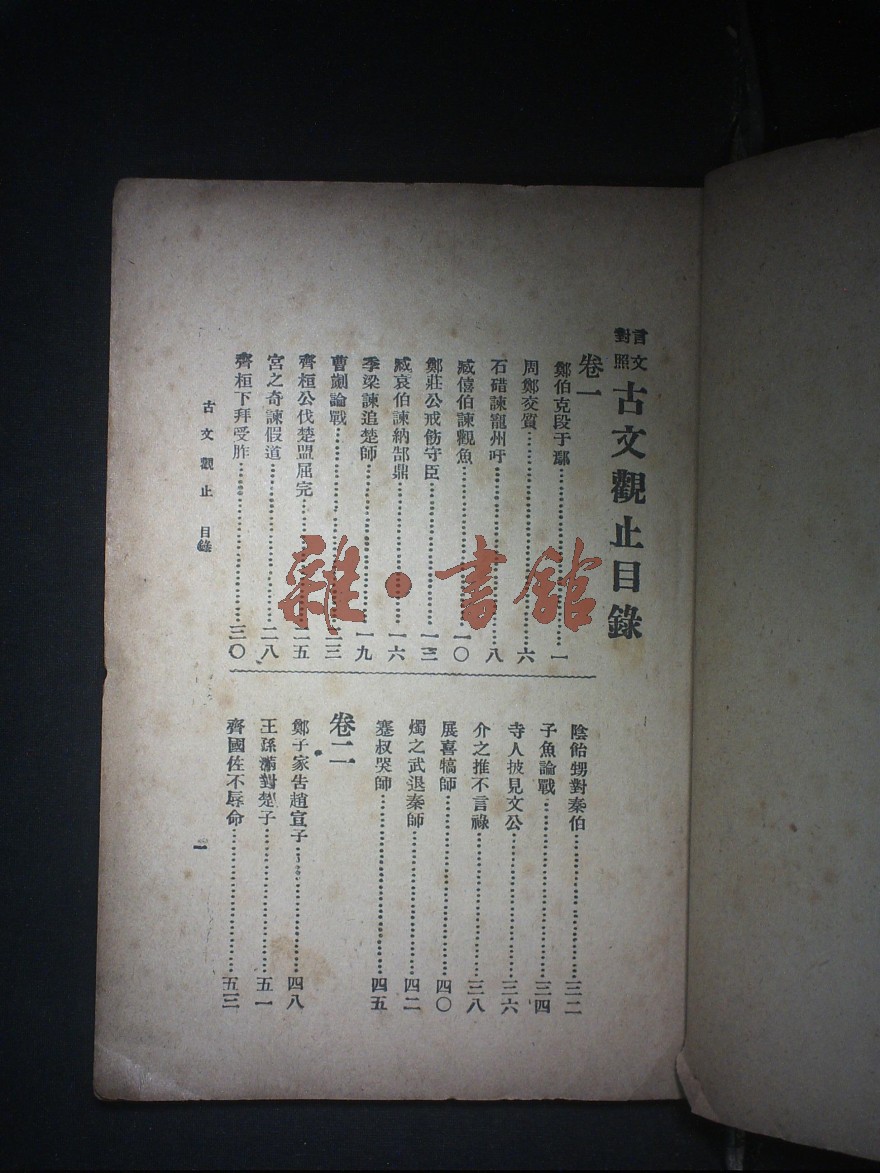 言文對照 古文觀止目錄
卷一
鄭伯克段于鄢……一
周鄭交質……六
石碏諫寵州吁……八
臧僖伯諫觀魚……一〇
鄭莊公戒飭守臣……一三
臧哀伯諫納郜鼎……一六
季梁諫追楚師……一九
曹劌論戰……二三
齊桓公伐楚盟屈完……二五
宮之奇諫假道……二八
齊桓下拜受胙……三〇
陰飴甥對秦伯……三二
子魚論戰……三四
寺人披見文公……三六
介之推不言祿……三八
展喜犒師……四〇
燭之武退秦師……四二
蹇叔哭師……四五
卷二
鄭子家告趙宣子……四八
王孫滿對楚子……五一
齊國佐不辱命……五三
古文觀止 目錄
一
雜·書館